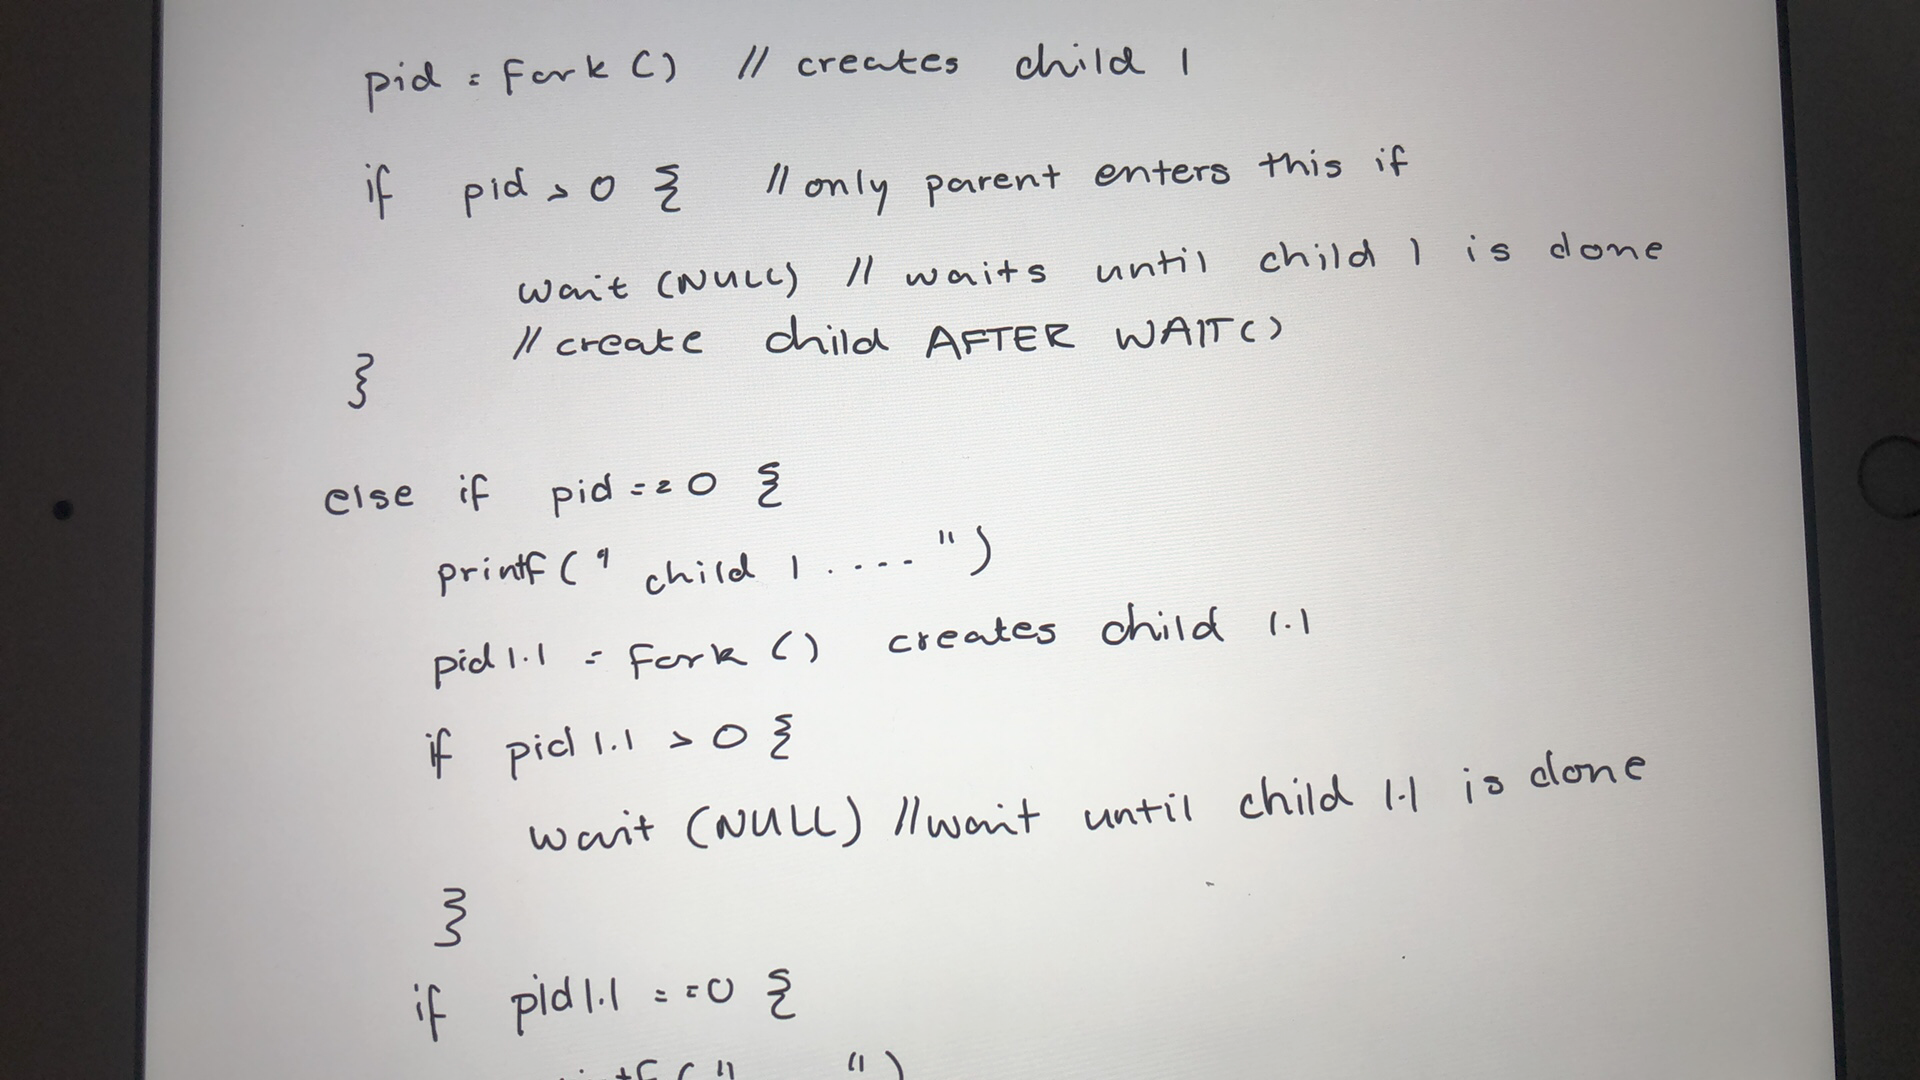 pid = fork () // creates child 1
if pid > 0 { // only parent enters this if
wait (NULL) // waits until child 1 is done
// create child AFTER WAIT()
}
else if pid == 0 {
printf (" child 1 .... ")
pid 1.1 = fork () creates child 1.1
if pid 1.1 > 0 {
wait (NULL) // wait until child 1.1 is done
}
if pid 1.1 == 0 {